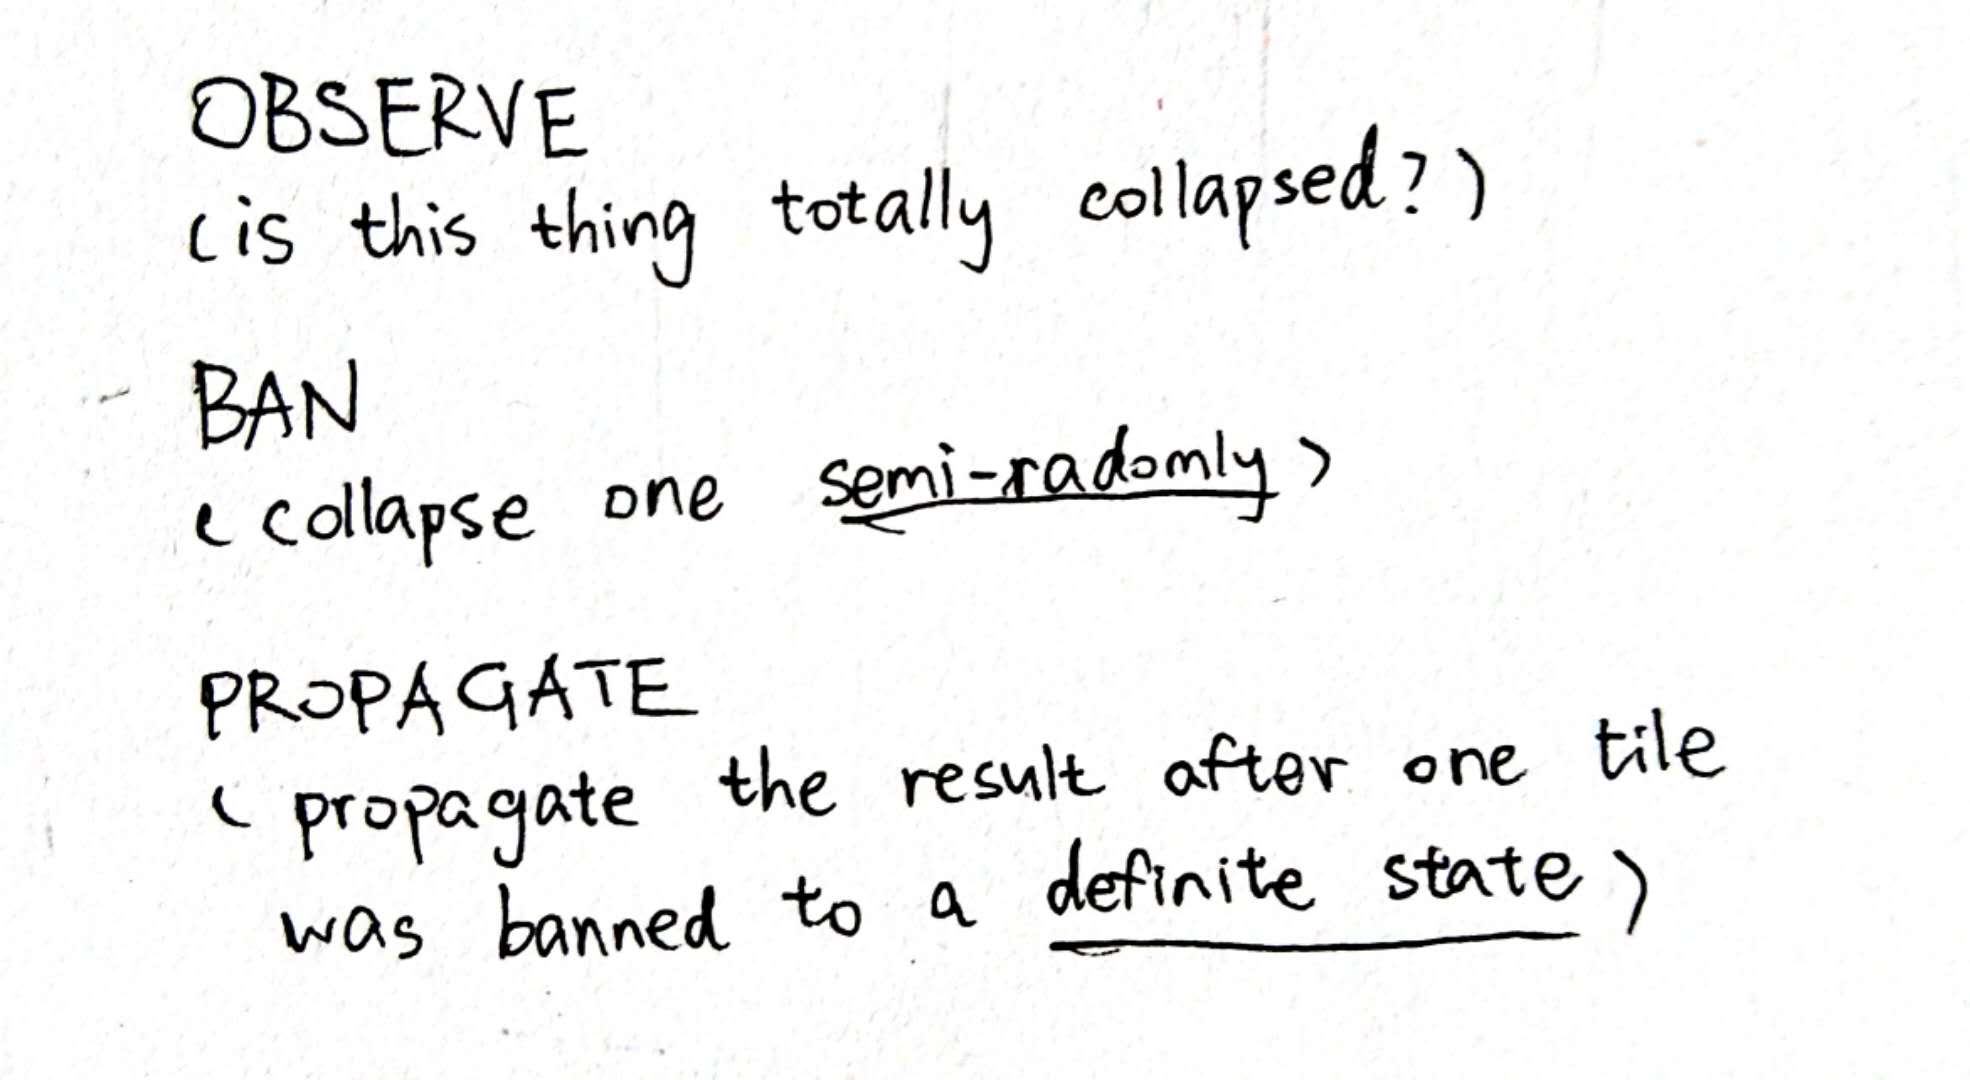 OBSERVE
(is this thing totally collapsed?)
BAN
(collapse one semi-radomly)
PROPAGATE
(propagate the result after one tile
was banned to a definite state)